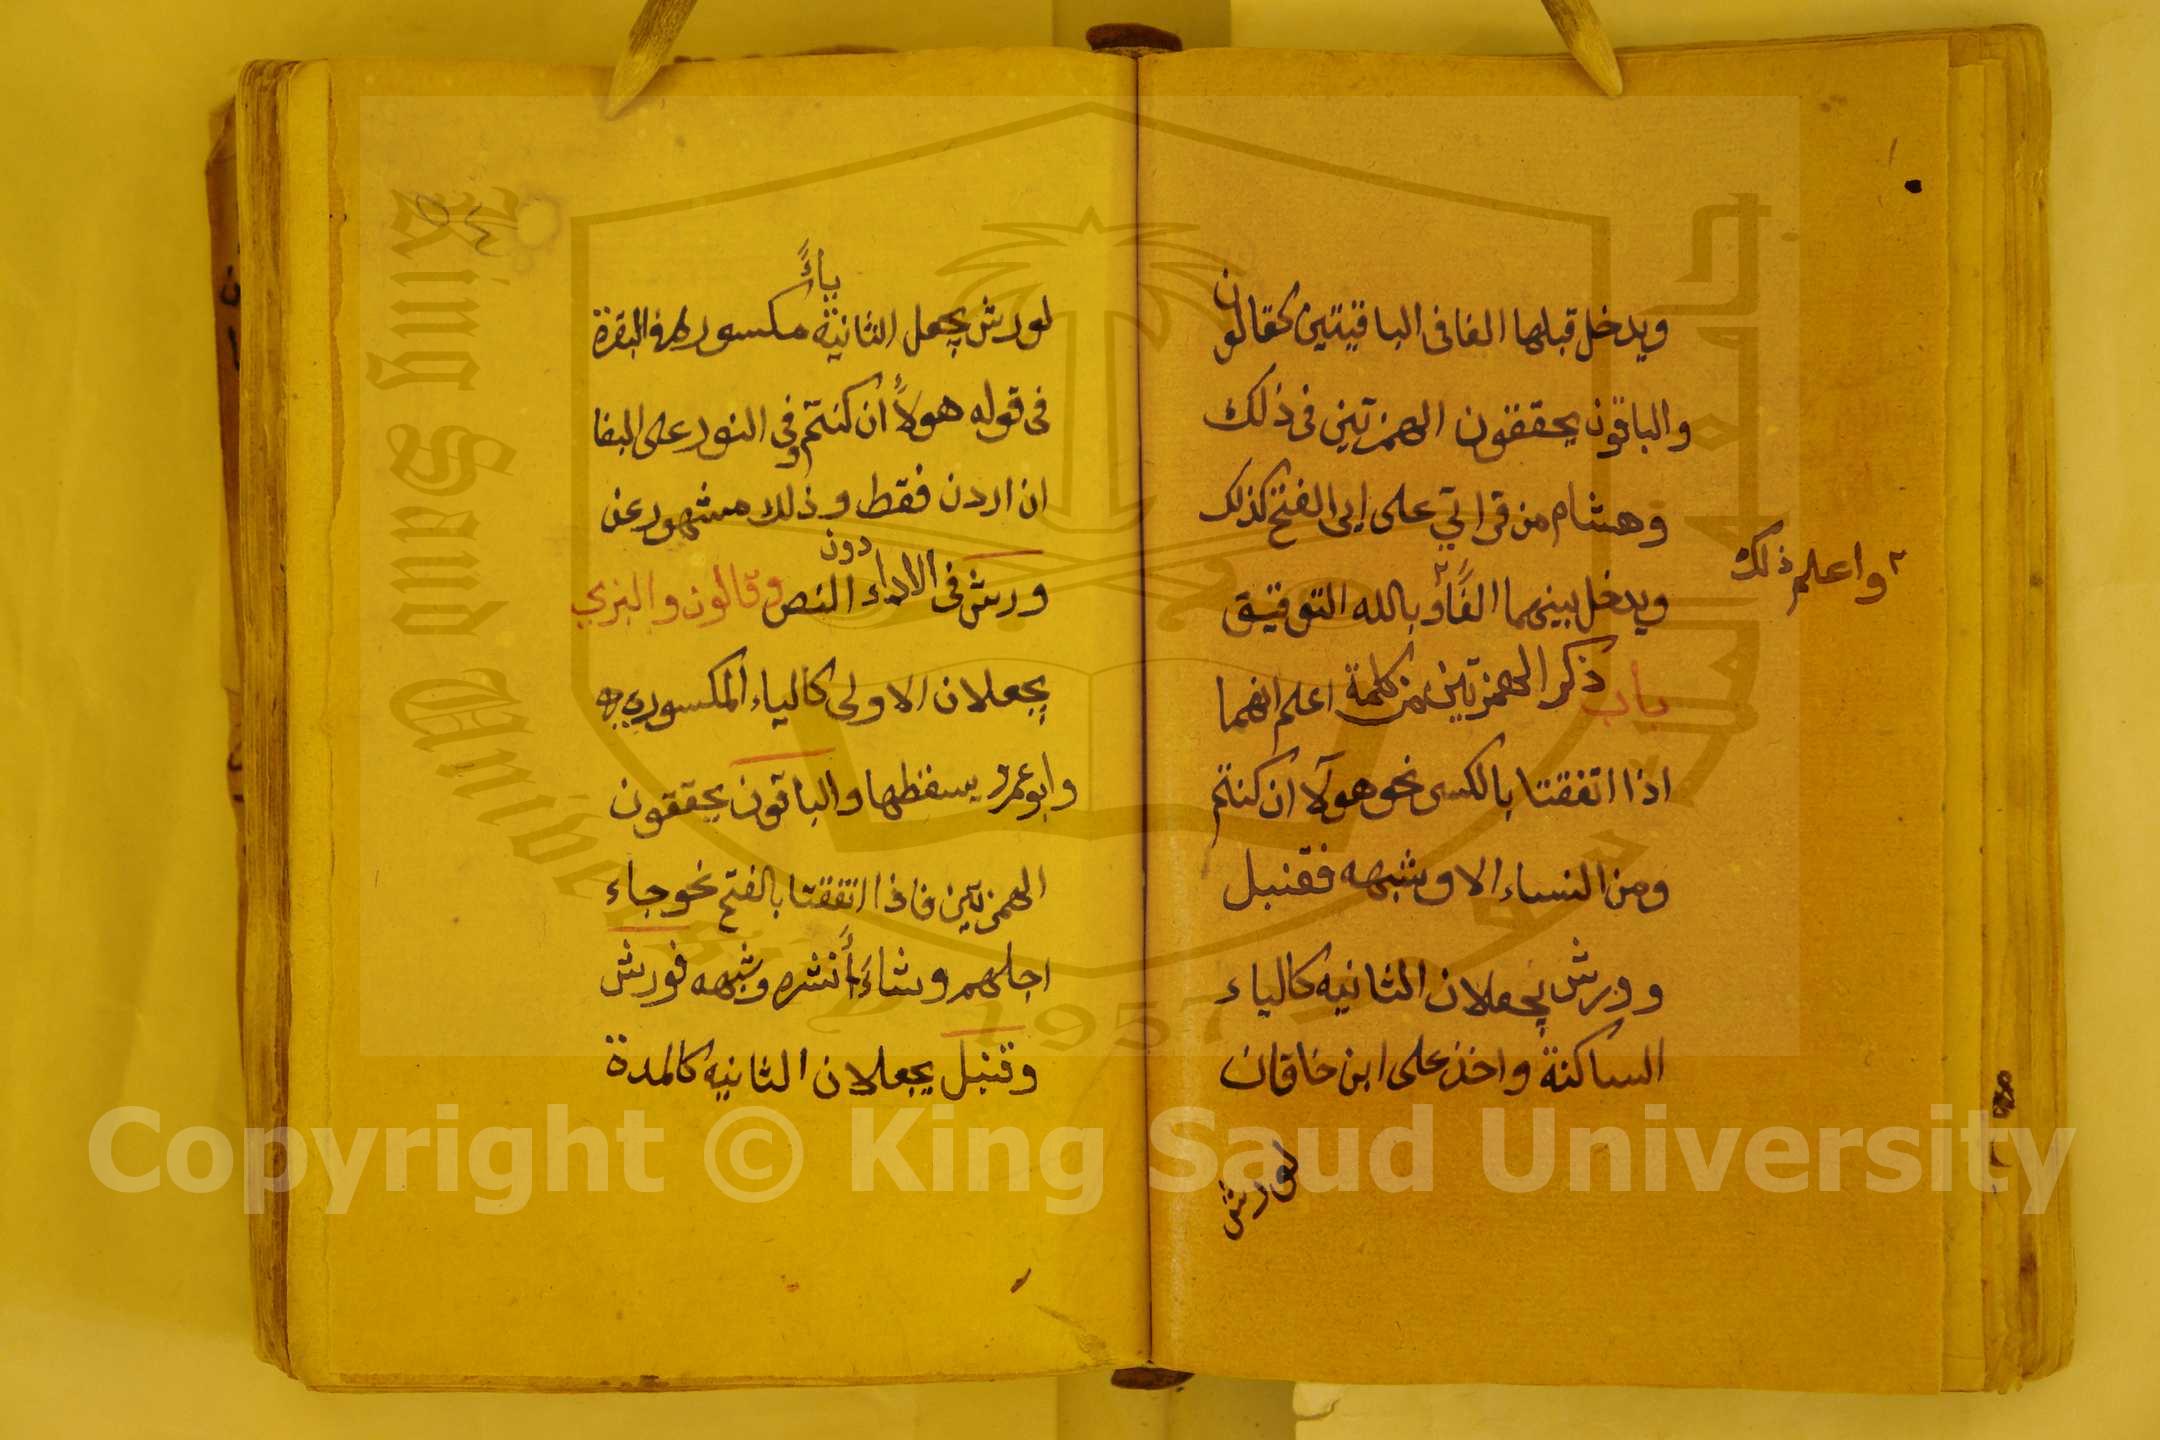 ويدخل قبلها الفا فى الباقيتين كقالون
والباقون يحققون الهمزتين فى ذلك
وهشام من قراتي على ابى الفتح كذلك
ويدخل بينهما الفًا٢ وبالله التوفيق
٢ واعلم ذلك
باب ذكر الهمزتين من كلمة اعلم انهما
اذا اتفقتا بالكسر نحو هولآ ان كنتم
ومن النساء الا وشبهه فقنبل
وورش يجعلان الثانيه كالياء
الساكنة واخذ على ابن خاقان
لورش
ياءً
لورش يجعل الثانية مكسوره فى البقرة
فى قوله هولاء ان كنتم وفى النور على البغا
ان اردن فقط وذلك مشهور عن
ورش فى الاداء دون النص وقالون والبزي
يجعلان الاولى كالياء المكسوره
وابو عمرو يسقطها والباقون يحققون
الهمزتين فاذا اتفقتا بالفتح نحو جاء
اجلهم وشاءَ أنشره وشبهه فورش
وقنبل يجعلان الثانيه كالمدة
٥٤
King Saud University
جامعة الملك سعود
1957
Copyright © King Saud University